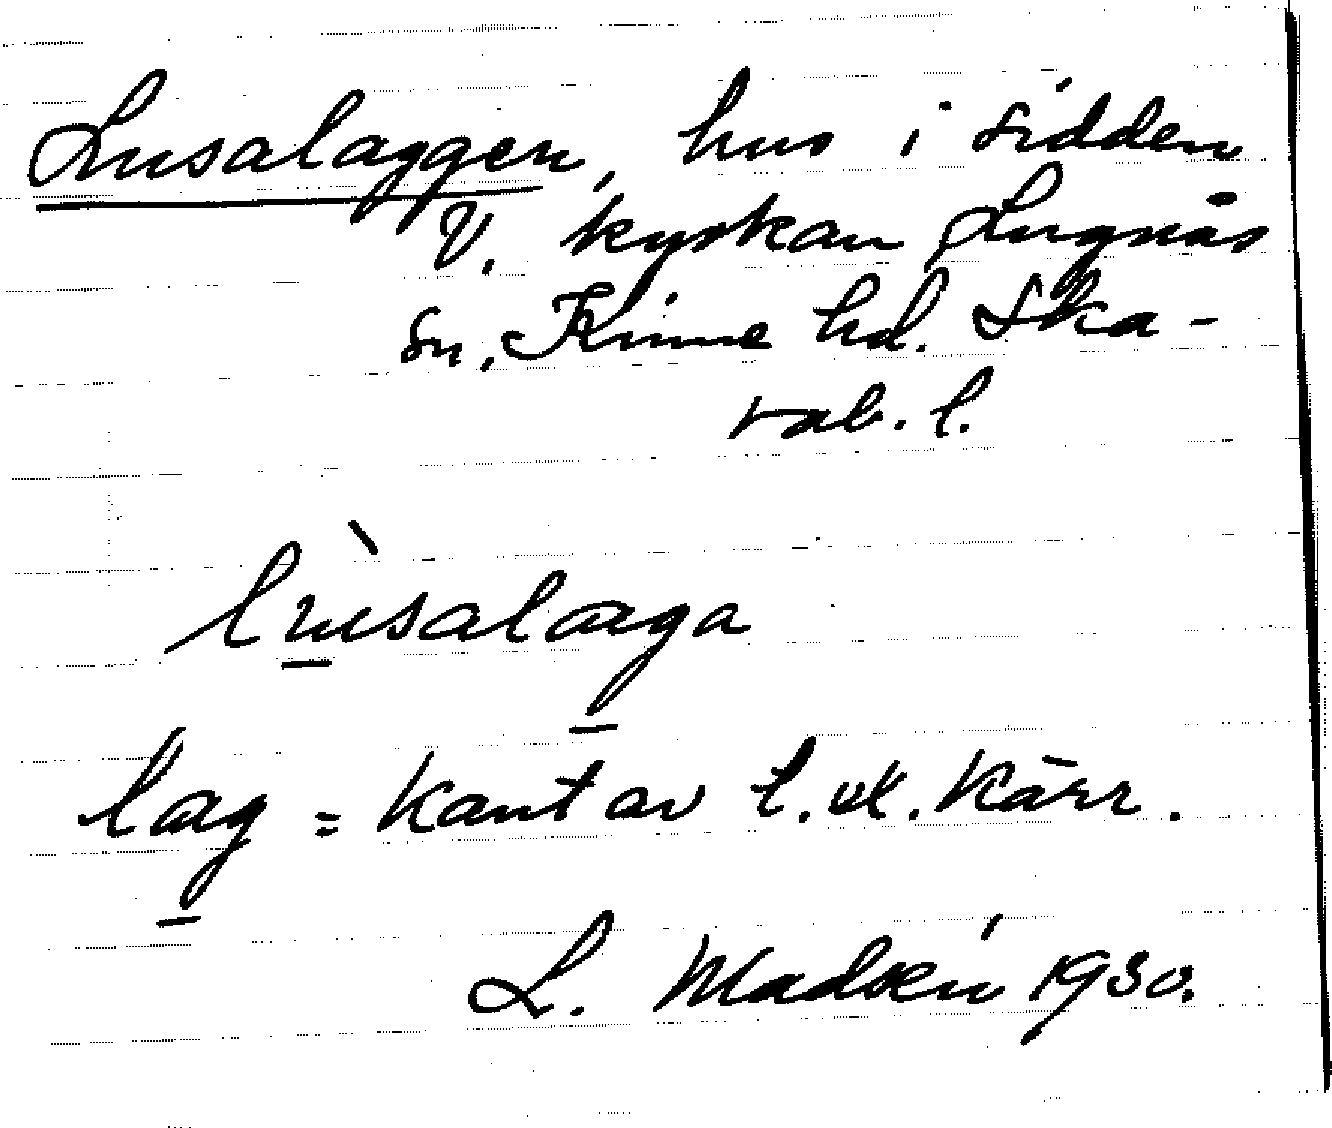 Lusalaggen, hus i sidden
V. kyrkan Lugnås
sn. Kinne hd. Ska-
rab. l.
lùsalaga
lag = kant av t. ex. kärr.
L. Madsén 1930.